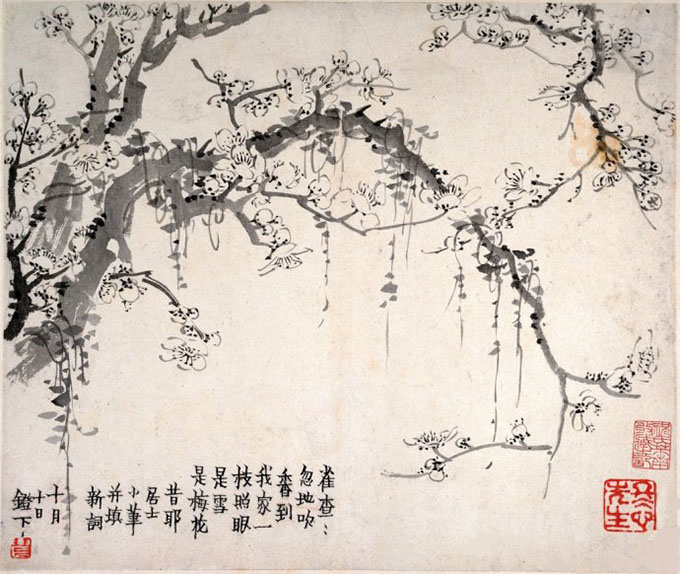 雀查〻
忽地吹
香到
我家一
枝照眼
是雪
是梅花
昔耶
居士
小筆
并填
新詞
十月
十日
鐙下
冬心先生